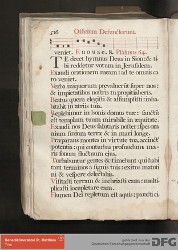 Officium Defunctorum.
veniet. E u o u a e. 8. Psalmus 64.
TE decet hymnus Deus in Sion: & ti
bi reddetur votum in Jerusalem.
Exaudi orationem meam: ad te omnis ca
ro veniet.
Verba iniquorum prævaluerunt super nos:
& impietatibus nostris tu propitiaberis.
Beatus quem elegisti, & assumpsisti: inha-
bitabit in atriis tuis.
Replebimur in bonis domus tuæ: sanctũ
est templum tuum mirabile in æquitate.
Exaudi nos Deus salutaris noster spes om
nium finium terræ & in mari longe.
Præparans montes in virtute tua, accinctus
potentia: qui conturbas profundum ma-
ris sonum fluctuum ejus.
Turbabuntur gentes & timebunt qui habi
tant terminos a signis tuis: exitus matuti
ni & vespere delectabis.
Visitasti terram & inebriasti eam: multi
plicasti locupletare eam.
Flumen Dei repletum est aquis: parasti ci
DFG